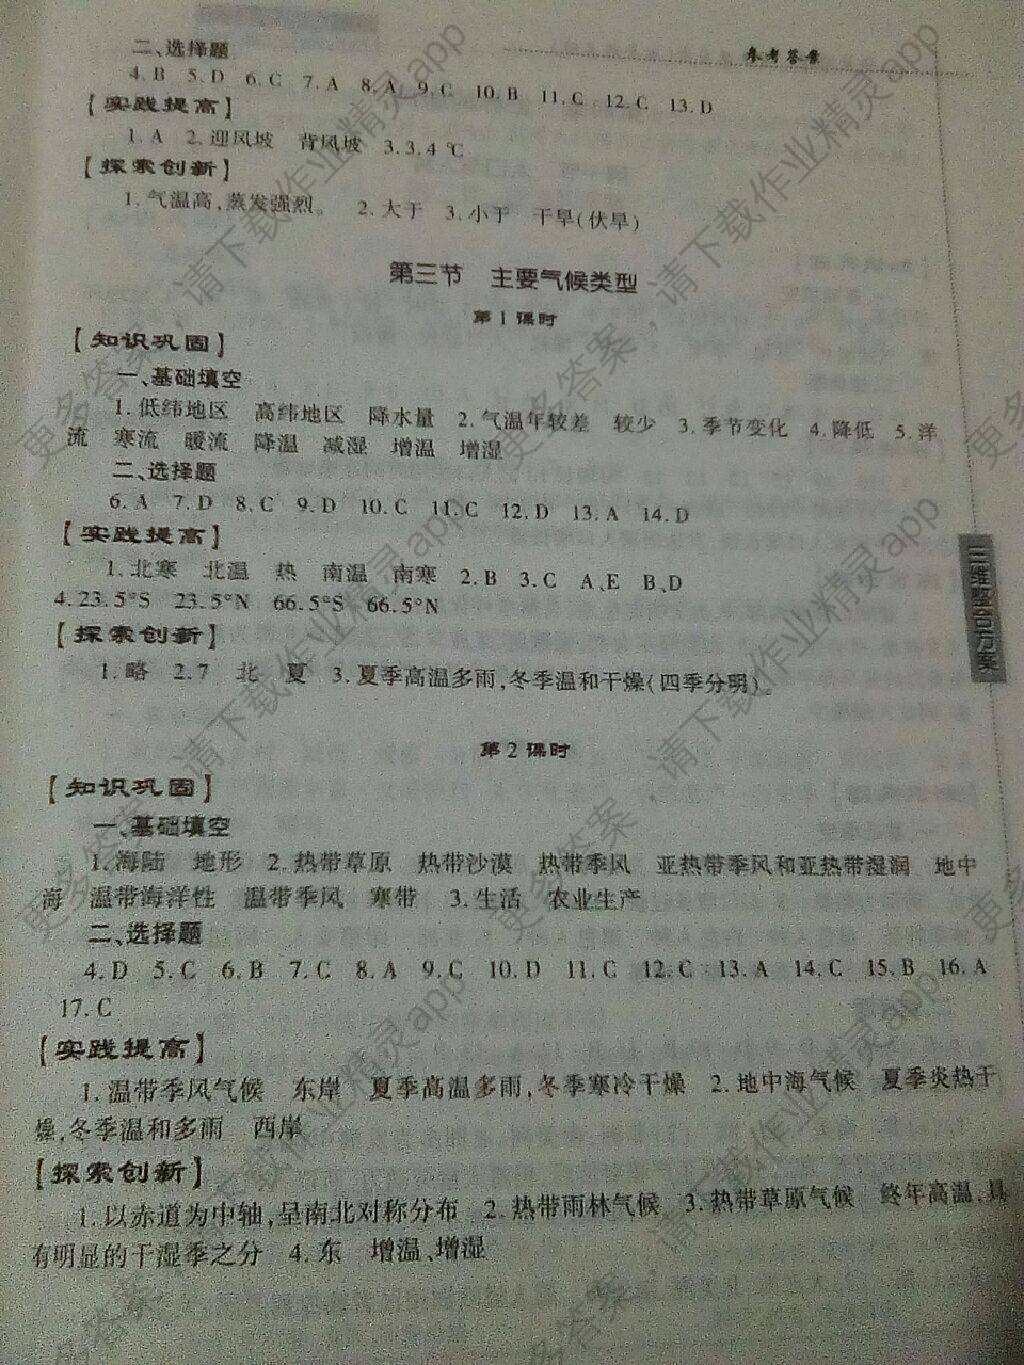 参考答案
二、选择题
4. B 5. D 6. C 7. A 8. A 9. C 10. B 11. C 12. C 13. D
【实践提高】
1. A 2. 迎风坡 背风坡 3. 3.4 ℃
【探索创新】
1. 气温高,蒸发强烈。 2. 大于 3. 小于 干旱(伏旱)
第三节 主要气候类型
第1课时
【知识巩固】
一、基础填空
1. 低纬地区 高纬地区 降水量 2. 气温年较差 较少 3. 季节变化 4. 降低 5. 洋
流 寒流 暖流 降温 减湿 增温 增湿
二、选择题
6. A 7. D 8. C 9. D 10. C 11. C 12. D 13. A 14. D
【实践提高】
1. 北寒 北温 热 南温 南寒 2. B 3. C A、E B、D
4. 23.5°S 23.5°N 66.5°S 66.5°N
【探索创新】
1. 略 2. 7 北 夏 3. 夏季高温多雨,冬季温和干燥(四季分明)。
三维整合方案
第2课时
【知识巩固】
一、基础填空
1. 海陆 地形 2. 热带草原 热带沙漠 热带季风 亚热带季风和亚热带湿润 地中
海 温带海洋性 温带季风 寒带 3. 生活 农业生产
二、选择题
4. D 5. C 6. B 7. C 8. A 9. C 10. D 11. C 12. C 13. A 14. C 15. B 16. A
17. C
【实践提高】
1. 温带季风气候 东岸 夏季高温多雨,冬季寒冷干燥 2. 地中海气候 夏季炎热干
燥,冬季温和多雨 西岸
【探索创新】
1. 以赤道为中轴,呈南北对称分布 2. 热带雨林气候 3. 热带草原气候 终年高温,具
有明显的干湿季之分 4. 东 增温、增湿
更多答案,请下载作业精灵app